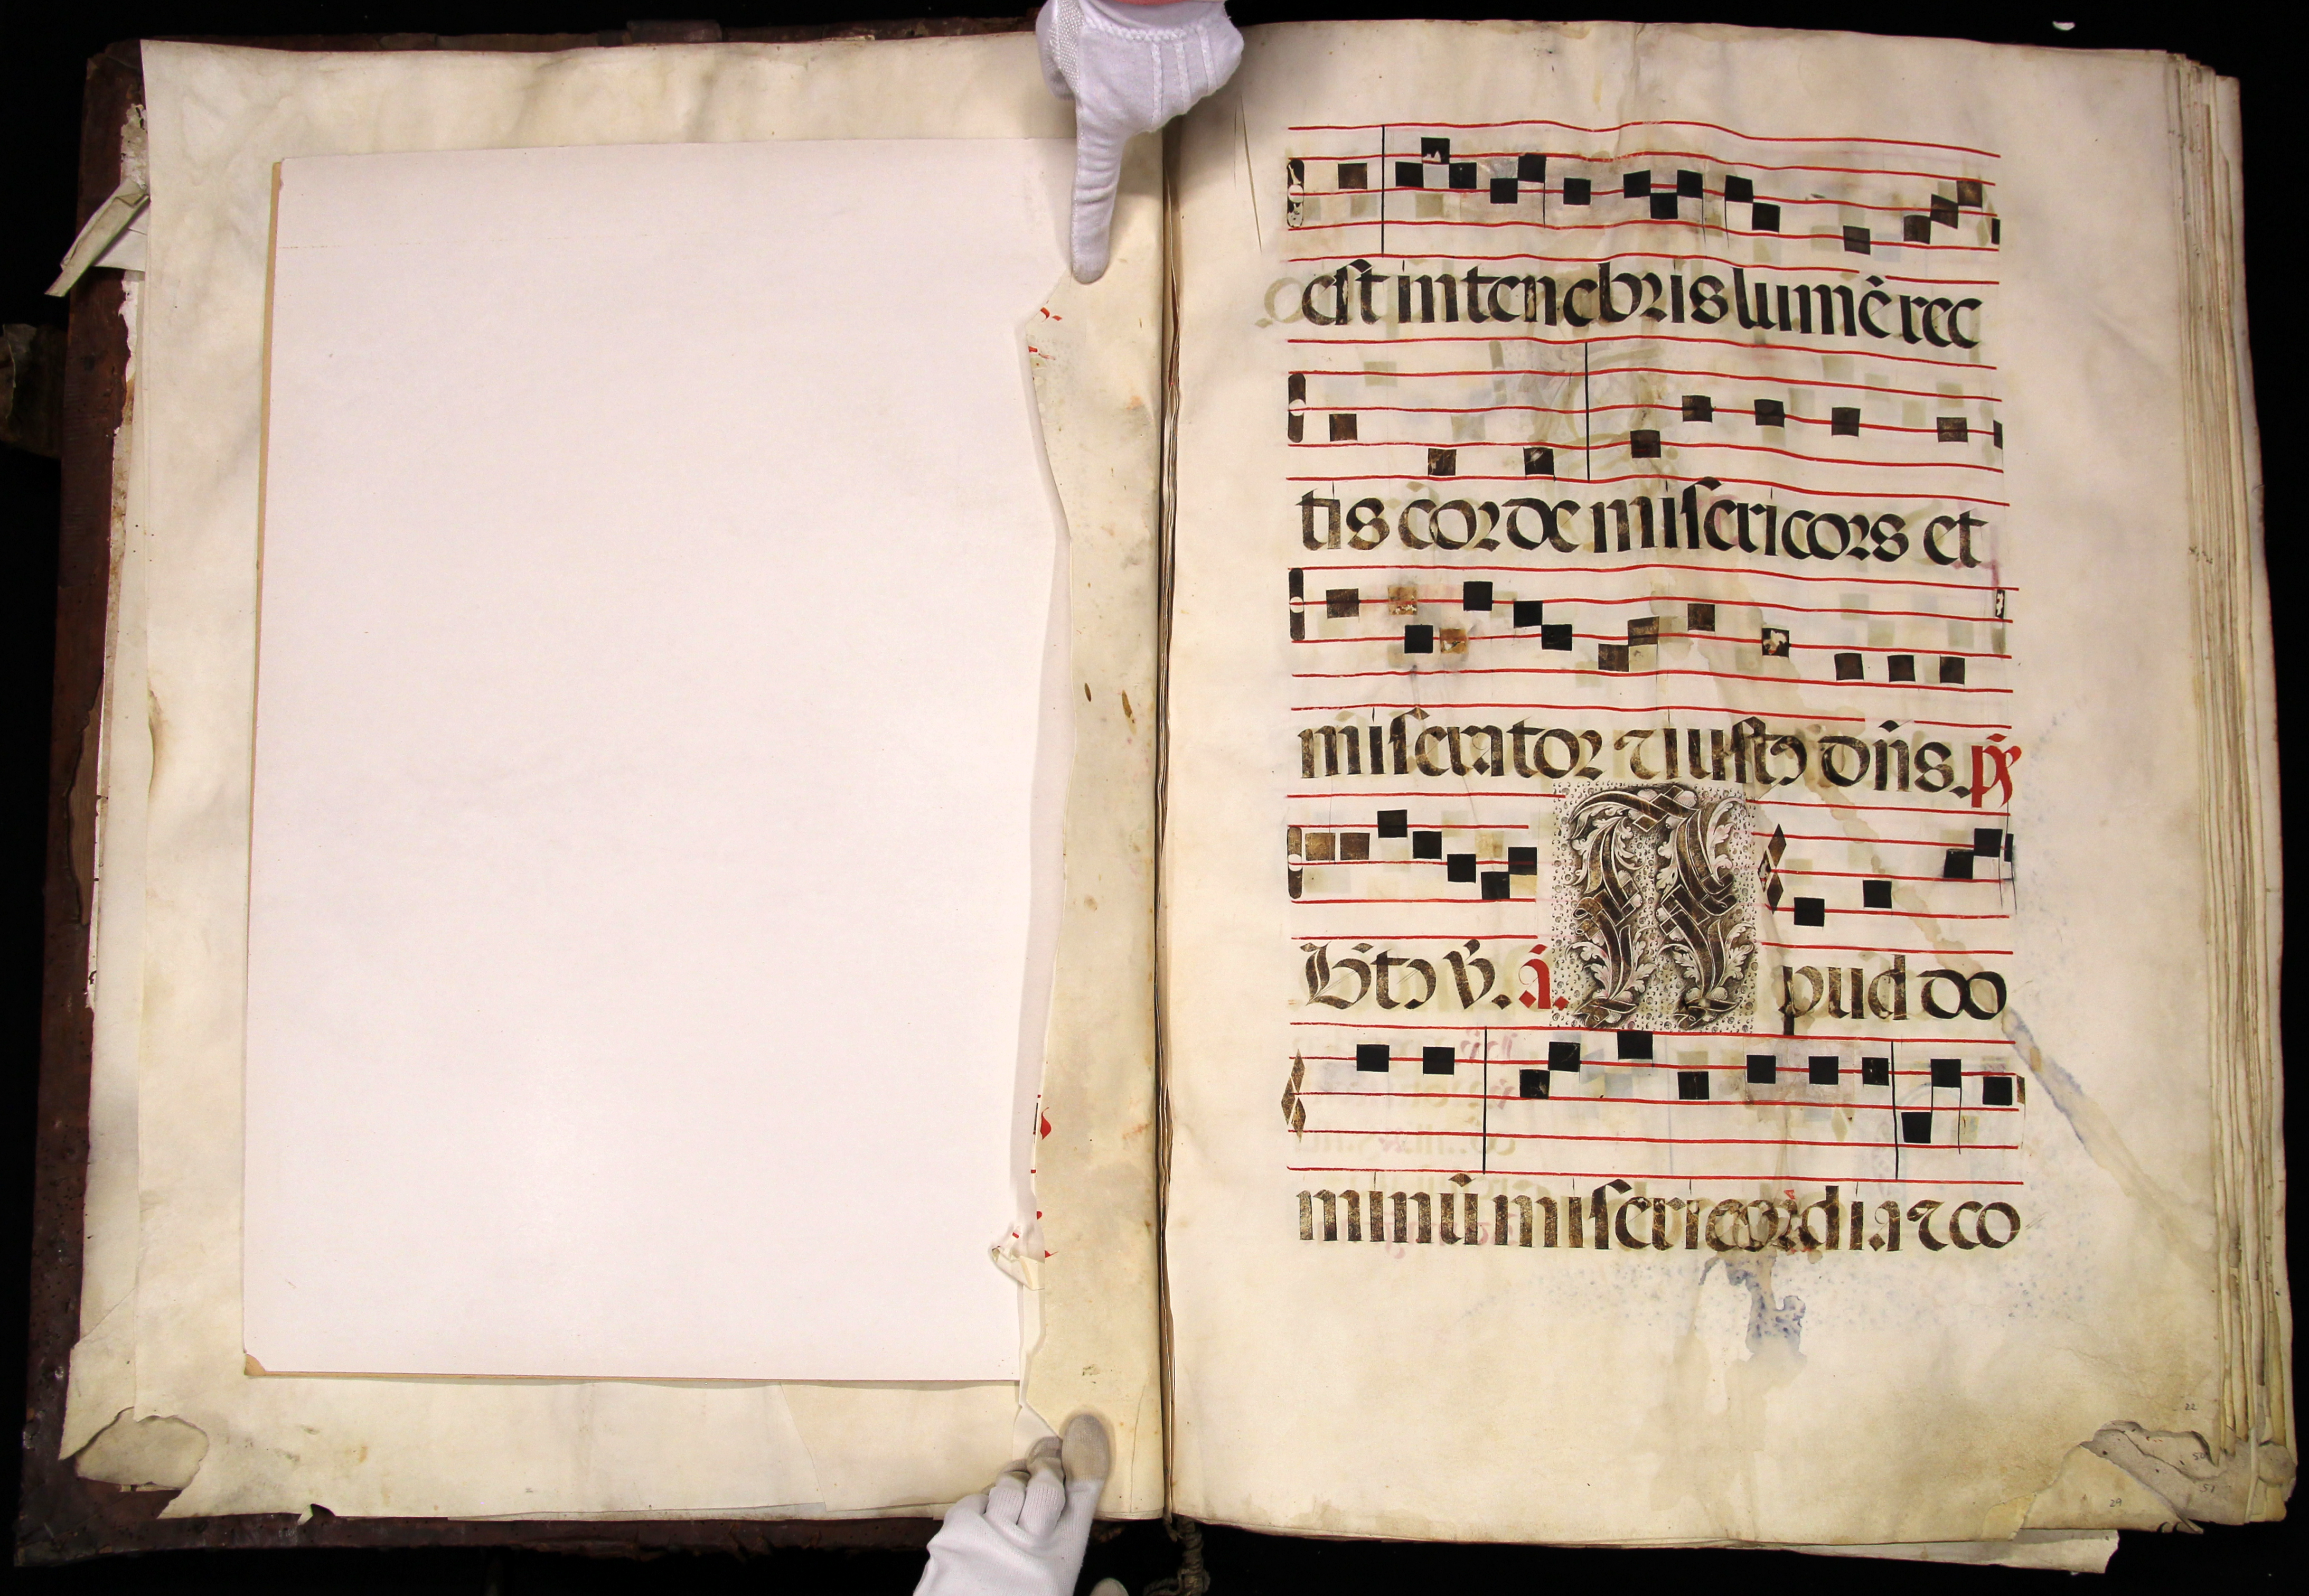 est in tenebris lumē rec
tis corde misericors et
miserator ⁊ iustꝰ dn̄s. p̄s
Btꝰ v̄. a. A pud do
minū misericordia ⁊ co
22
29
51